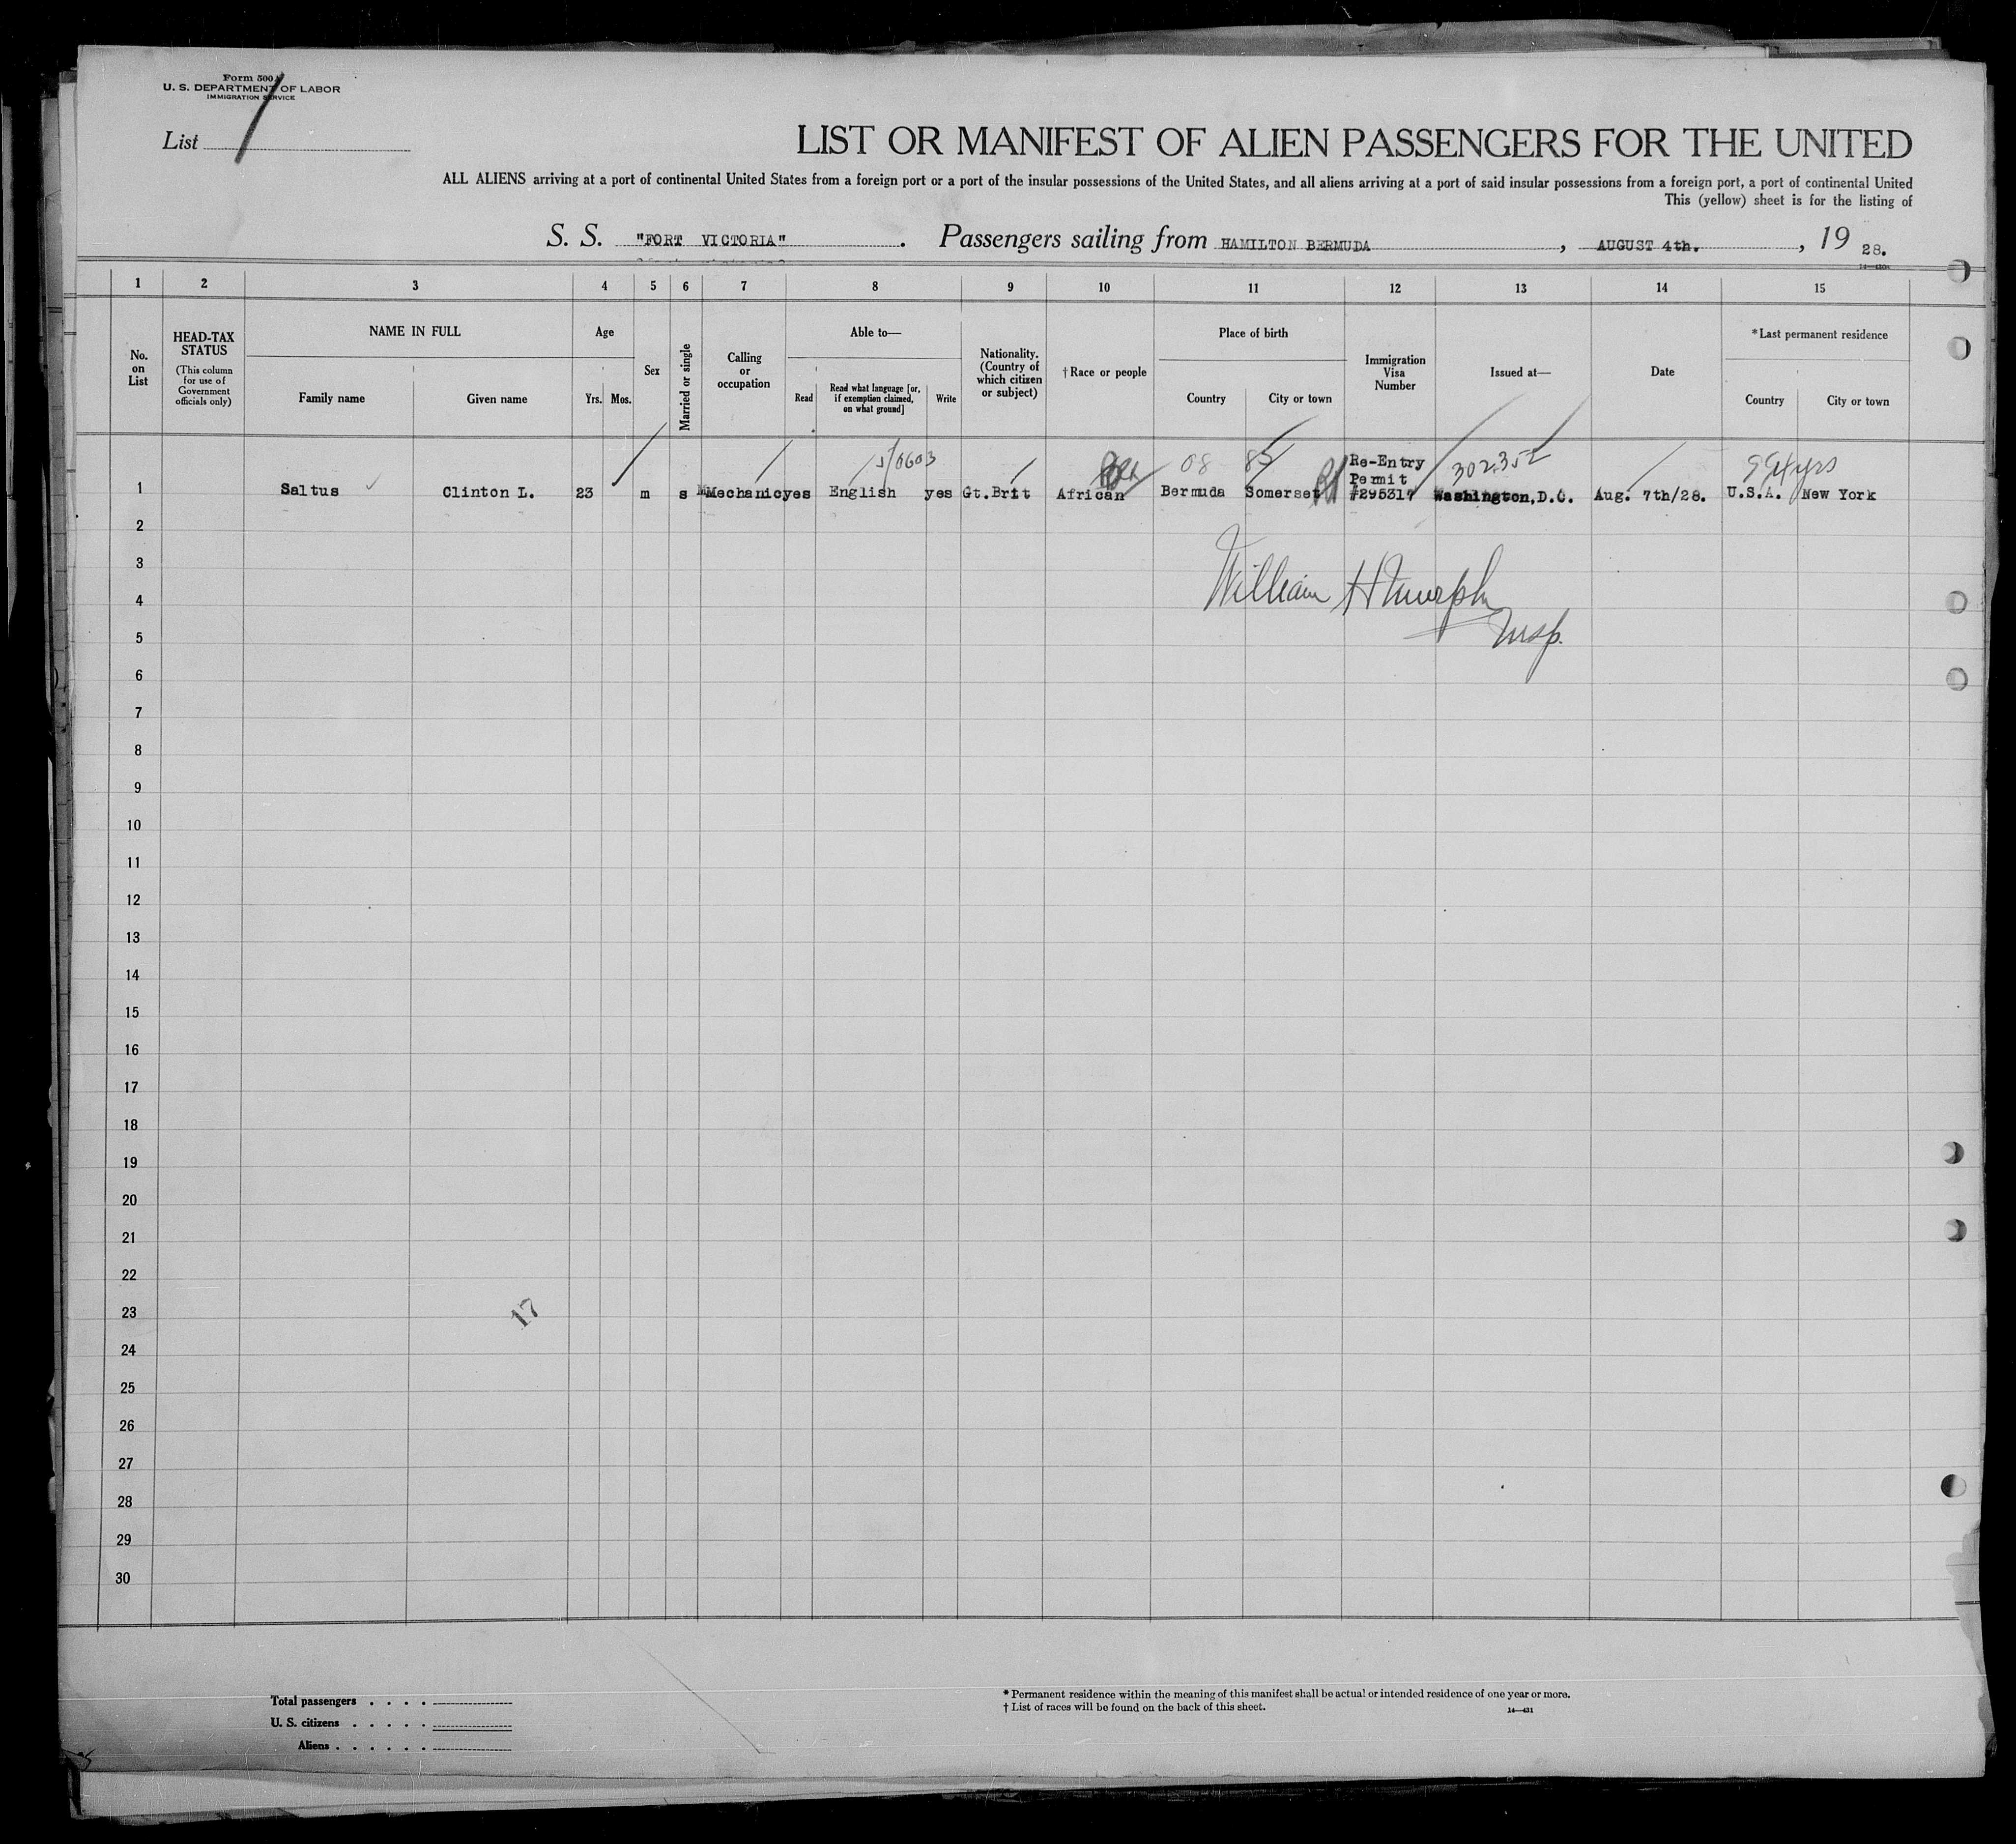 Form 500A
U. S. DEPARTMENT OF LABOR
IMMIGRATION SERVICE
List 1
LIST OR MANIFEST OF ALIEN PASSENGERS FOR THE UNITED
ALL ALIENS arriving at a port of continental United States from a foreign port or a port of the insular possessions of the United States, and all aliens arriving at a port of said insular possessions from a foreign port, a port of continental United
This (yellow) sheet is for the listing of
S. S. "FORT VICTORIA" . Passengers sailing from HAMILTON BERMUDA , AUGUST 4th. , 19 28.
1 2 3 4 5 6 7 8 9 10 11 12 13 14 15
No. on List
HEAD-TAX STATUS
(This column for use of Government officials only)
NAME IN FULL
Family name
Given name
Age
Yrs.
Mos.
Sex
Married or single
Calling or occupation
Able to—
Read
Read what language [or, if exemption claimed, on what ground]
Write
Nationality. (Country of which citizen or subject)
†Race or people
Place of birth
Country
City or town
Immigration Visa Number
Issued at—
Date
*Last permanent residence
Country
City or town
08
302352
1 Saltus Clinton L. 23 m s Mechanic yes English yes Gt.Brit African Bermuda Somerset Re-Entry Permit #295317 Washington,D.C. Aug. 7th/28. U.S.A. New York
2
William H Murphy
3
4
Insp.
5
6
7
8
9
10
11
12
13
14
15
16
17
18
19
20
21
22
23
17
24
25
26
27
28
29
30
Total passengers . . . .
U. S. citizens . . . . .
Aliens . . . . . .
* Permanent residence within the meaning of this manifest shall be actual or intended residence of one year or more.
† List of races will be found on the back of this sheet.
14—431